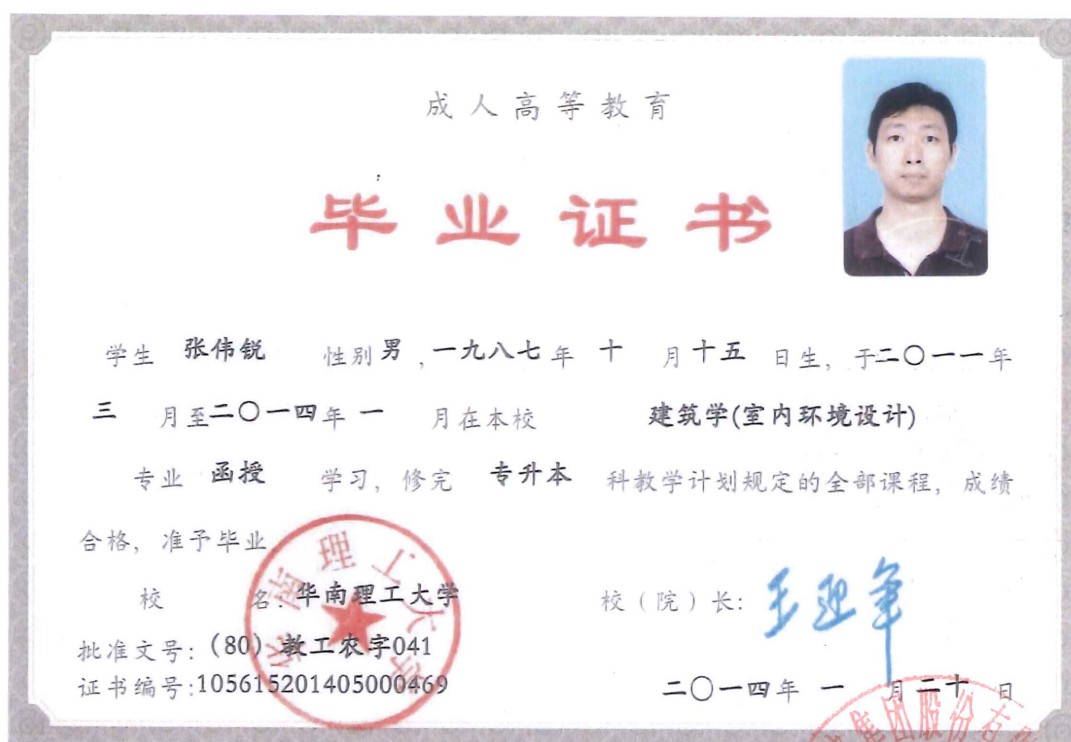 成人高等教育
毕业证书
学生 张伟锐 性别 男 ,一九八七 年 十 月 十五 日生, 于二〇一一年
三 月至二〇一四年 一 月在本校 建筑学(室内环境设计)
专业 函授 学习, 修完 专升本 科教学计划规定的全部课程, 成绩
合格, 准予毕业
校 名: 华南理工大学 校（院）长: 王迎军
批准文号: (80) 教工农字041
证书编号:105615201405000469 二〇一四年 一 月二十 日
华南理工大学
集团股份有